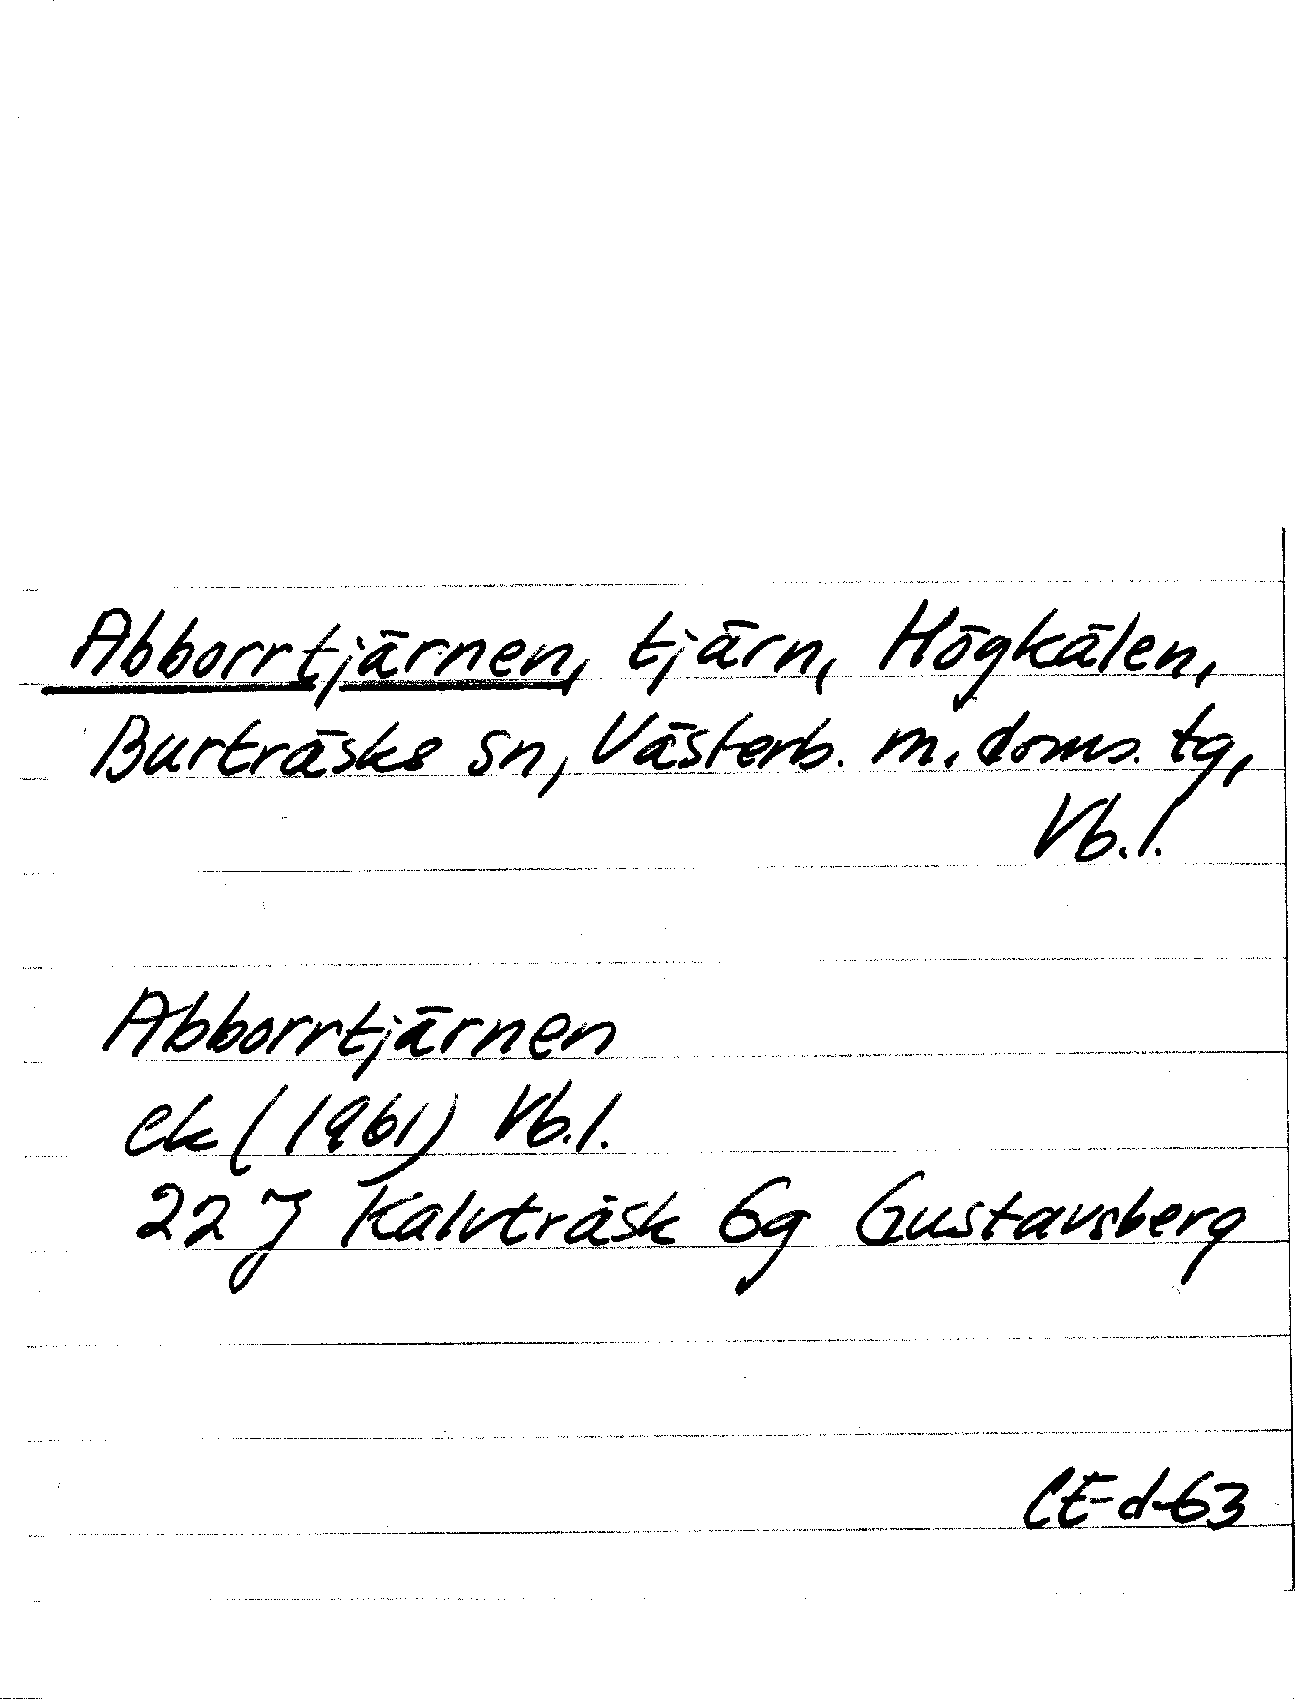 Abborrtjärnen, tjärn, Högkälen,
Burträsks sn, Västerb. m. doms. tg,
Vb.l.
Abborrtjärnen
ek (1961) Vb.l.
22 J Kalvträsk 6g Gustavsberg
CE-d-63